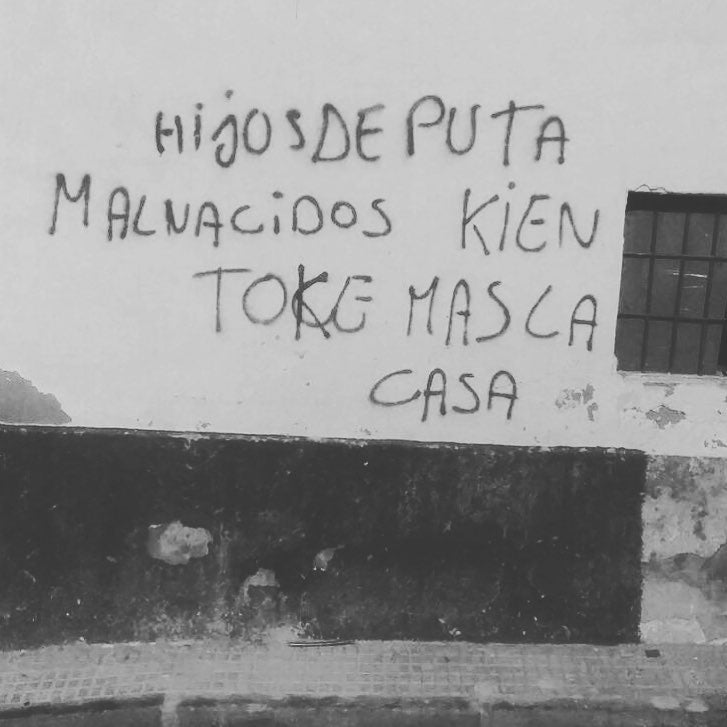 HijOSDE PUTA
MALNACiDOS KiEN
TOKE MAS LA
CASA